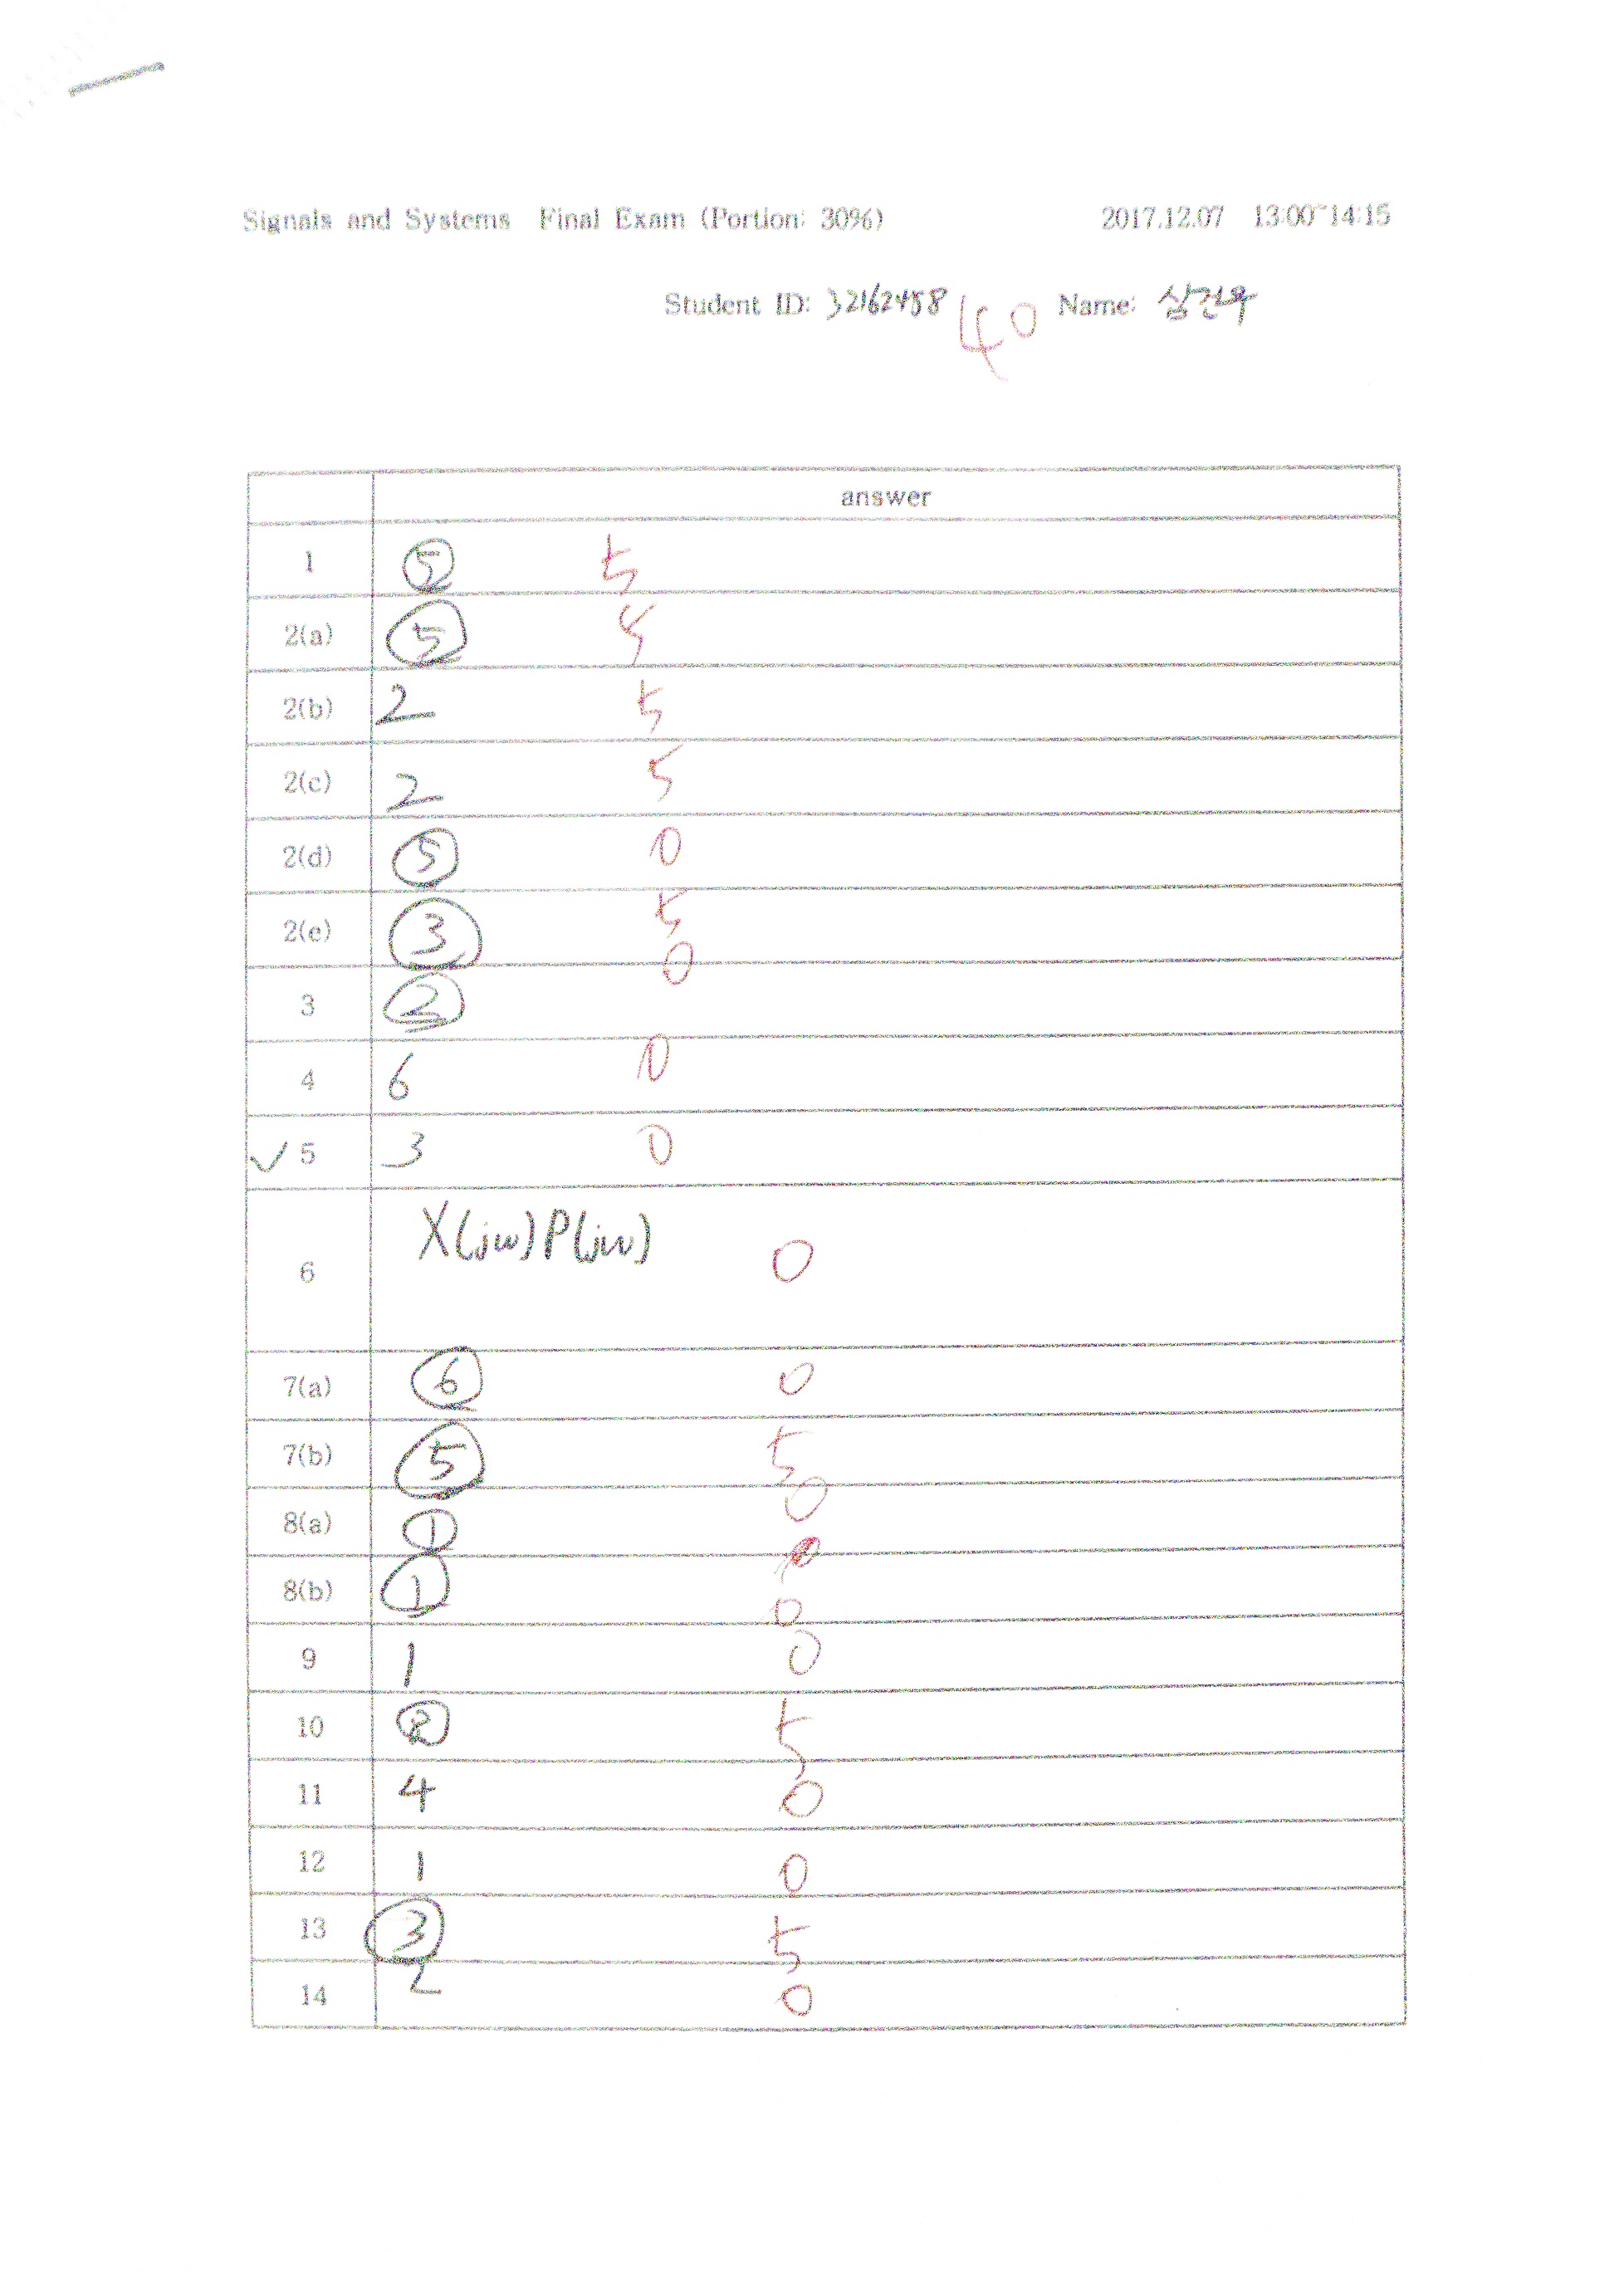 Signals and Systems Final Exam (Portion: 30%) 2017.12.07 13:00~14:15
Student ID: 32162458 40 Name:
answer
1 ⑤ 5
2(a) ⑤ 5
2(b) 2 5
2(c) 2 5
2(d) ⑤ 0
2(e) ③ 5
3 ② 0
4 6 0
✓ 5 3 0
6 X(jw)P(jw) 0
7(a) ⑥ 0
7(b) ⑤ 5
8(a) ① 0
8(b) ① 0
9 1 0
10 ② 5
11 4 0
12 1 0
13 ③ 5
14 2 0